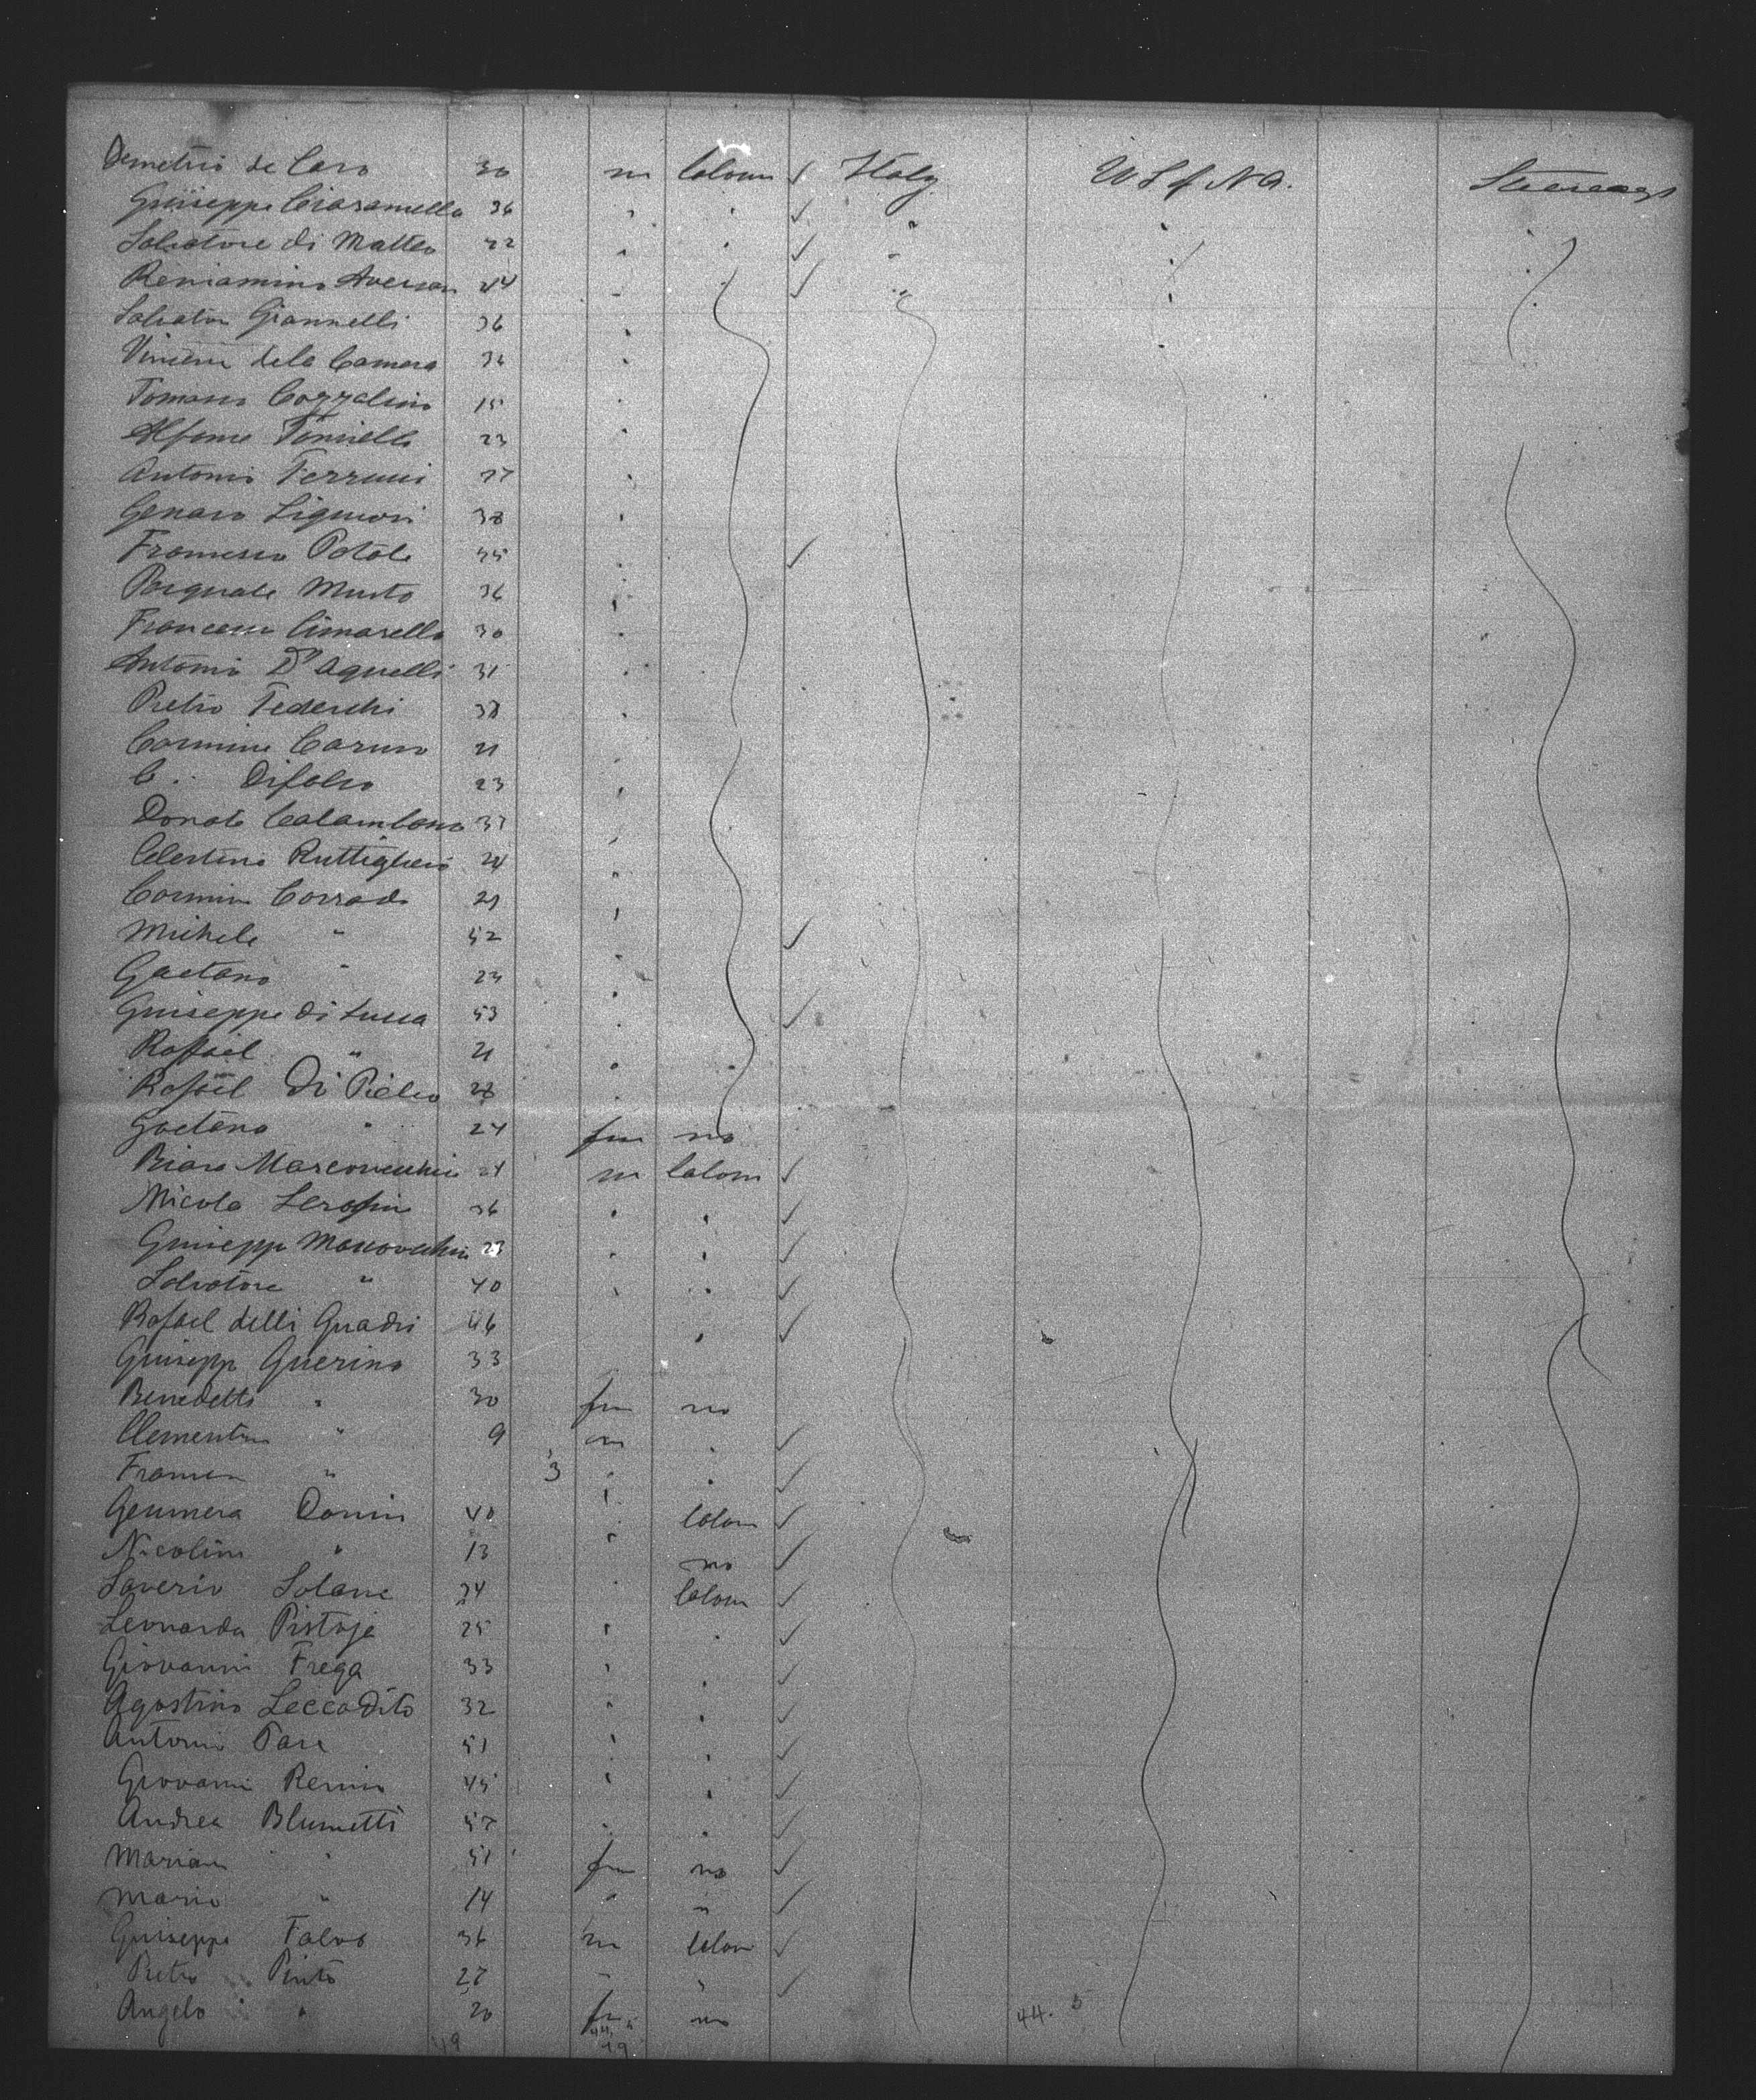 Demetrio de Caro 30 m labour ✓ Italy U S of N A. Steerage
Guiseppe Ciaramella 36 ✓
Salvatore di Matteo 42 ✓
Beniamino Aversan 44 ✓
Salvator Giannelli 36
Vincenz dela Camera 36
Tomaso Cozzolino 15
Alfonse Tonniello 23
Antonio Ferrucci 27
Genaro Liguori 38
Francesco Potote 45 ✓
Pasquale Musto 36
Francesco Cimarello 30
Antonio D'Aquelli 31
Pietro Tedeschi 38
Carmine Caruso 21
C. Difolco 23
Donato 37
Celestino Ruttiglieri 24
Carmin Corrado 21
Michele " 52 ✓
Gaetano " 23
Guiseppe di Lucca 53 ✓
Raffael " 21
Rafael Di Pielco 28
Gaetano " 24 fm no
Marcovecchio m labour ✓
Nicola Serafin 36 ✓
Guisepp Marcovechio 23 ✓
Salvatore " 40 ✓
Rafael delli Quadri 46 ✓
Guisepp Guerino 33
Benedetti " 30 fm no
Clementin " 9 m ✓
Frances " 3 ✓
Genmera Donin 40 labour ✓
Nicolin " 13 no ✓
Saverio Solane 34 labour ✓
Leonarda Pistoje 25 ✓
Giovanni Frega 33 ✓
Agostino Leccadito 32 ✓
Antonio Pace 51 ✓
Giovanni Rennin 45 ✓
Andrea Blumetti 57 ✓
Marian " 51 fm no ✓
Mario " 14 " " ✓
Guiseppe Falvo 36 m labour ✓
Pietro Pinto 27 " " ✓
Angelo " 20 fm no 44. 5
49 44 5
49